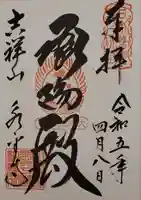 奉拝
令和五年
四月八日
承陽殿
吉祥山
永平寺